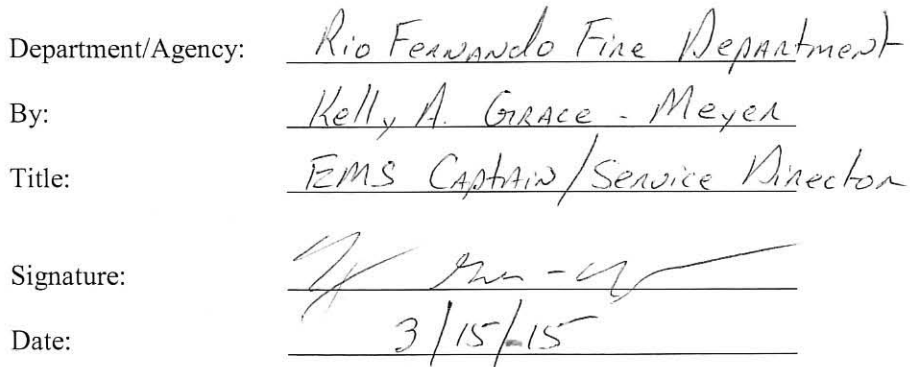 Department/Agency: Rio Fernando Fire Department
By: Kelly A. Grace - Meyer
Title: EMS Captain/Service Director
Signature:
Date: 3/15/15